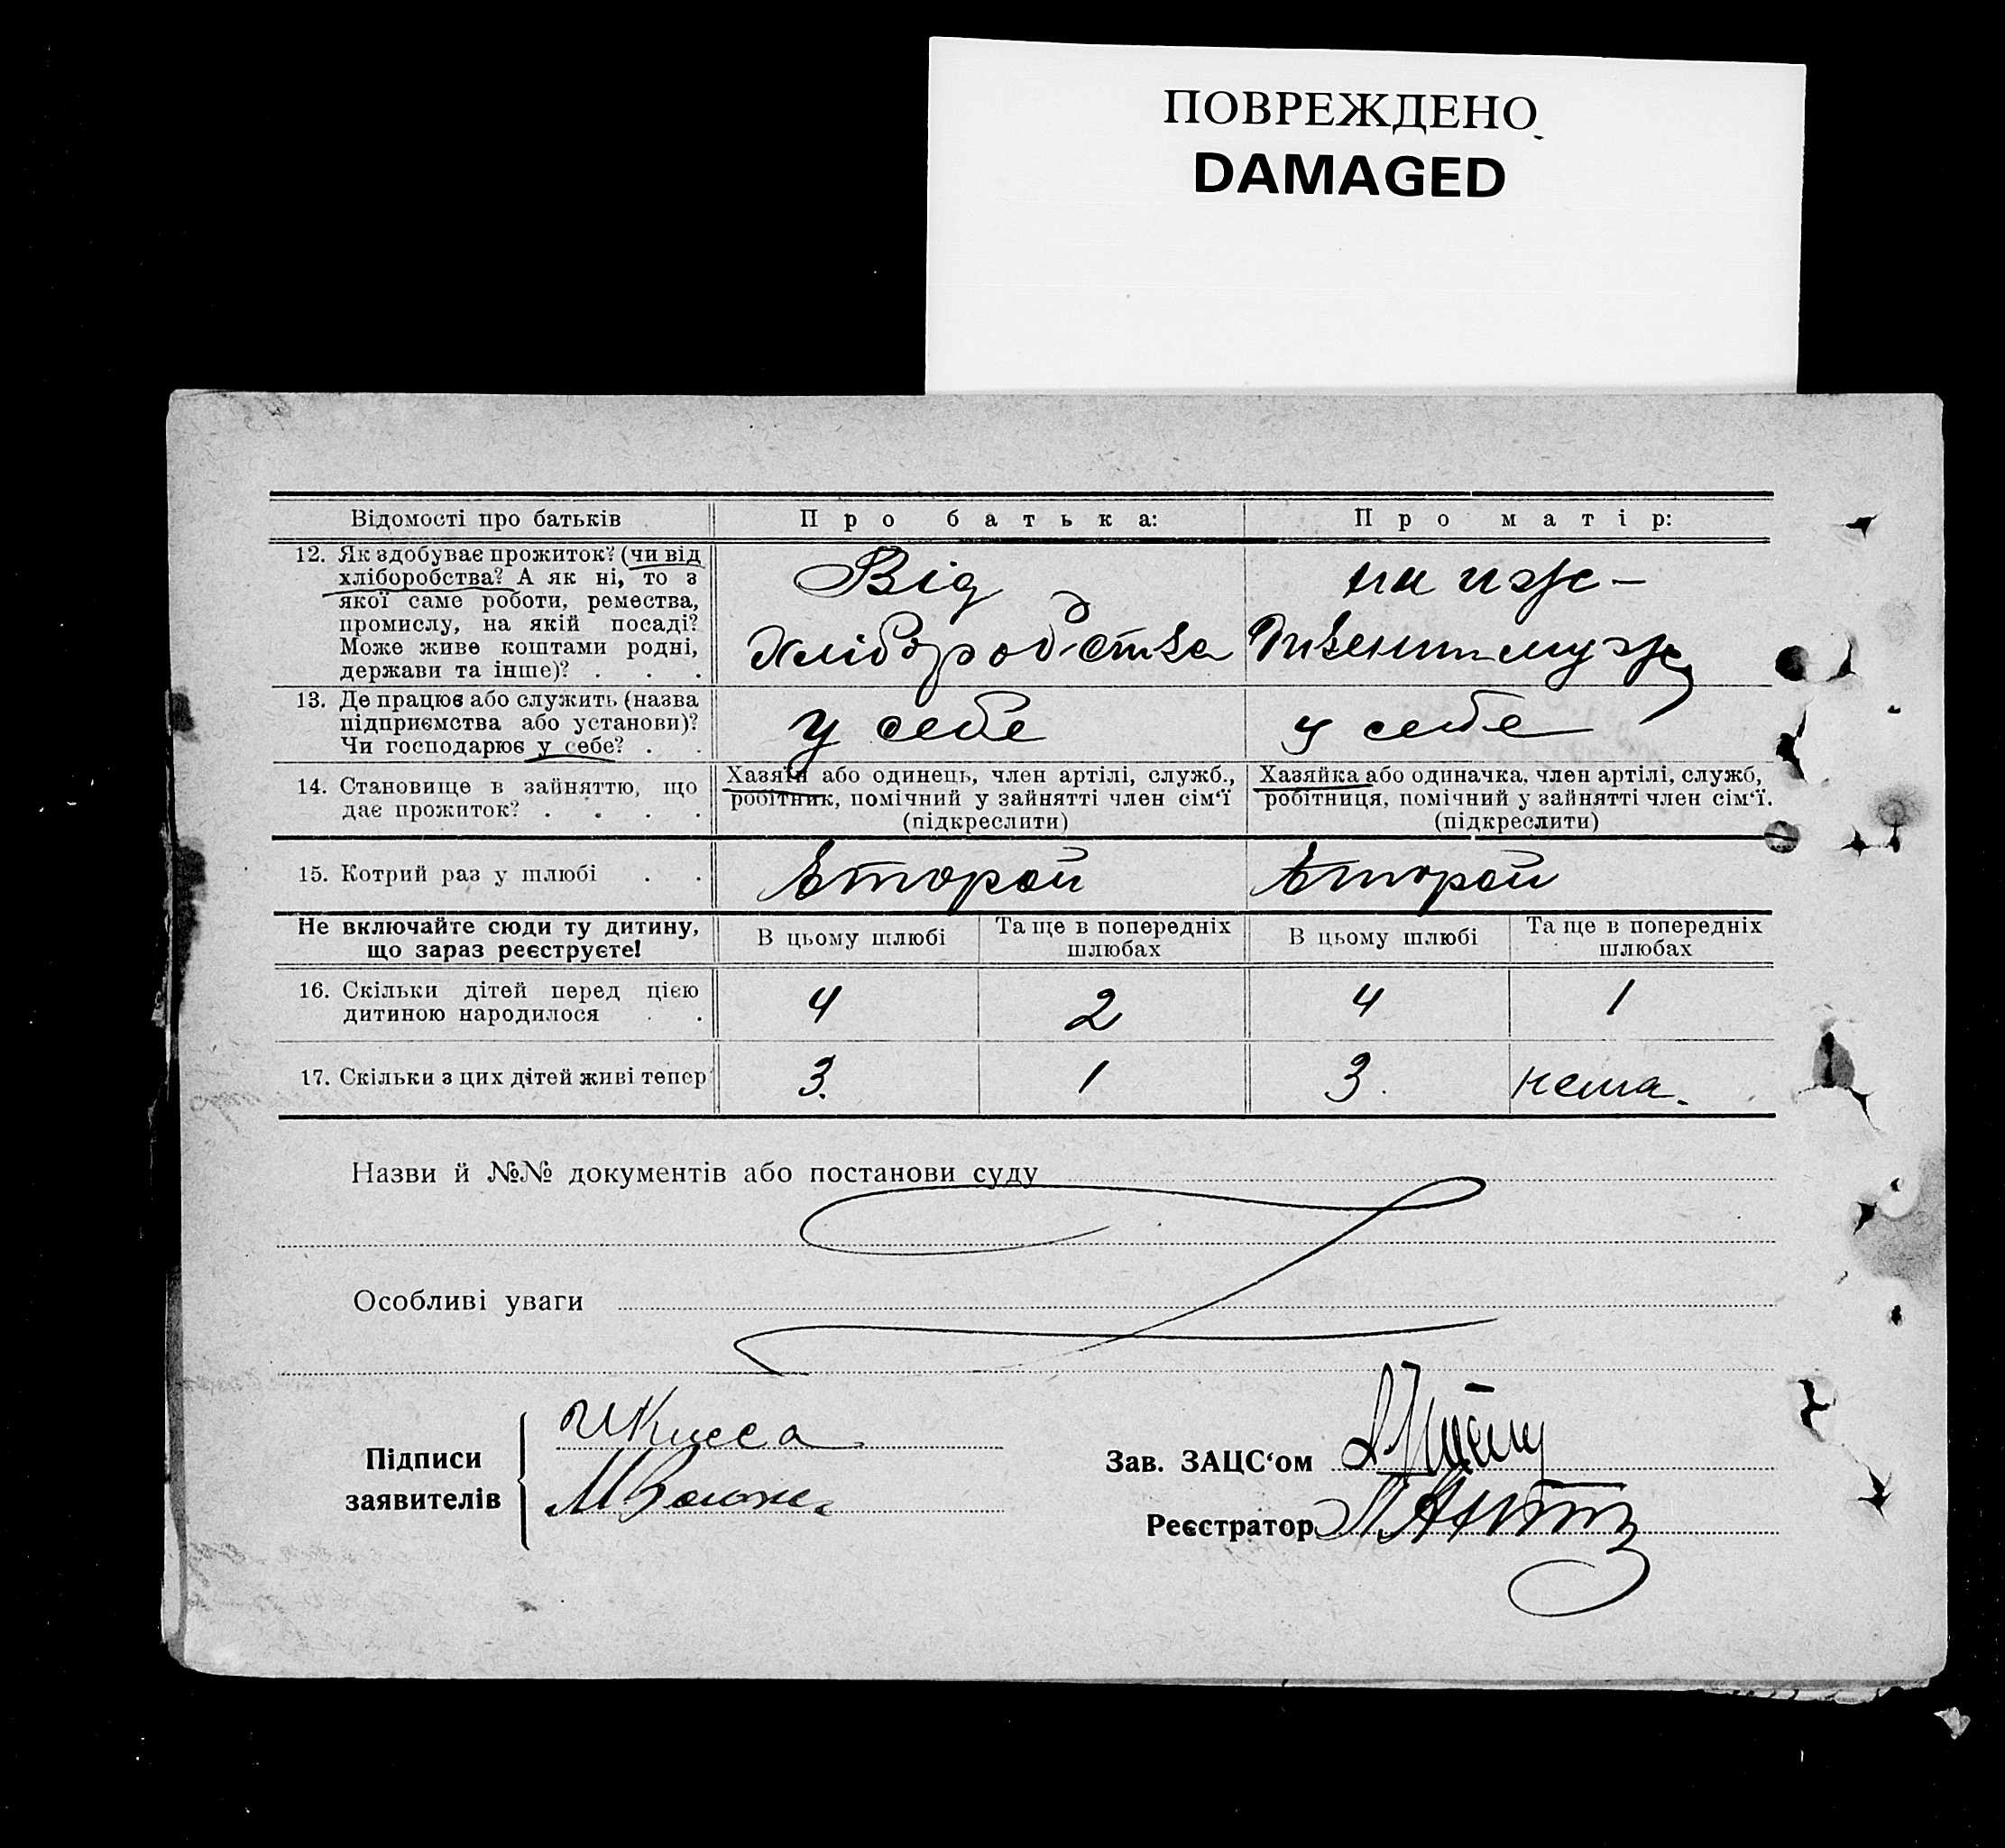 ПОВРЕЖДЕНО
DAMAGED
Відомості про батьків
Про батька:
Про матір:
12. Як здобуває прожиток? (чи від
хліборобства? А як ні, то з
якої саме роботи, ремества,
промислу, на якій посаді?
Може живе коштами родні,
держави та інше)? . . .
Від
хліборобства
на иж-
дивении мужа
13. Де працює або служить (назва
підприємства або установи)?
Чи господарює у себе? . .
у себе
у себе
14. Становище в зайняттю, що
дає прожиток? . . . .
Хазяїн або одинець, член артілі, служб.,
робітник, помічний у зайнятті член сім'ї
(підкреслити)
Хазяйка або одиначка, член артілі, служб,
робітниця, помічний у зайнятті член сім'ї.
(підкреслити)
15. Котрий раз у шлюбі . .
второй
второй
Не включайте сюди ту дитину,
що зараз реєструєте!
В цьому шлюбі
Та ще в попередніх
шлюбах
В цьому шлюбі
Та ще в попередніх
шлюбах
16. Скільки дітей перед цією
дитиною народилося . .
4
2
4
1
17. Скільки з цих дітей живі тепер
3.
1
3.
нема.
Назви й №№ документів або постанови суду
Особливі уваги
Підписи
заявителів
Зав. ЗАЦС'ом
Реєстратор